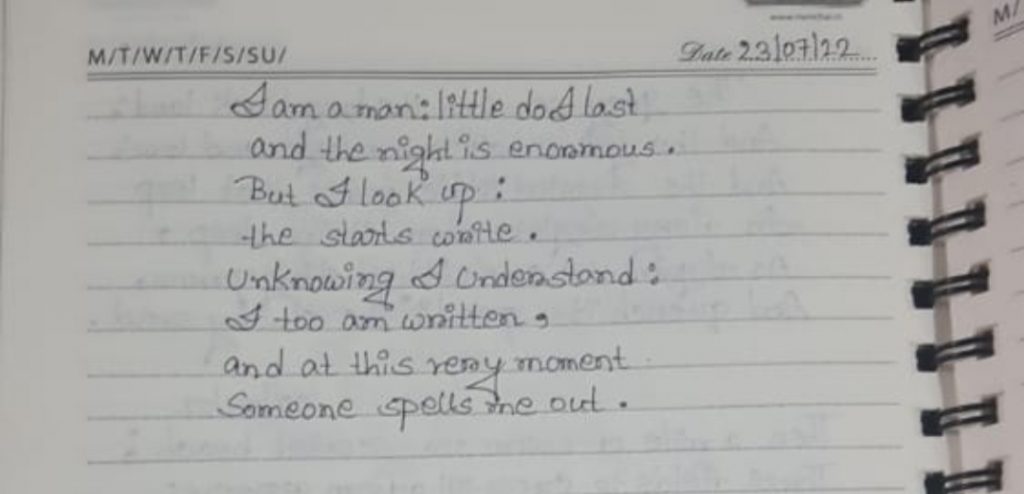 M/T/W/T/F/S/SU/
Date 23/07/22
I am a man: little do I last
and the night is enormous.
But I look up:
the starts write.
Unknowing I Understand:
I too am written,
and at this very moment
Someone spells me out.